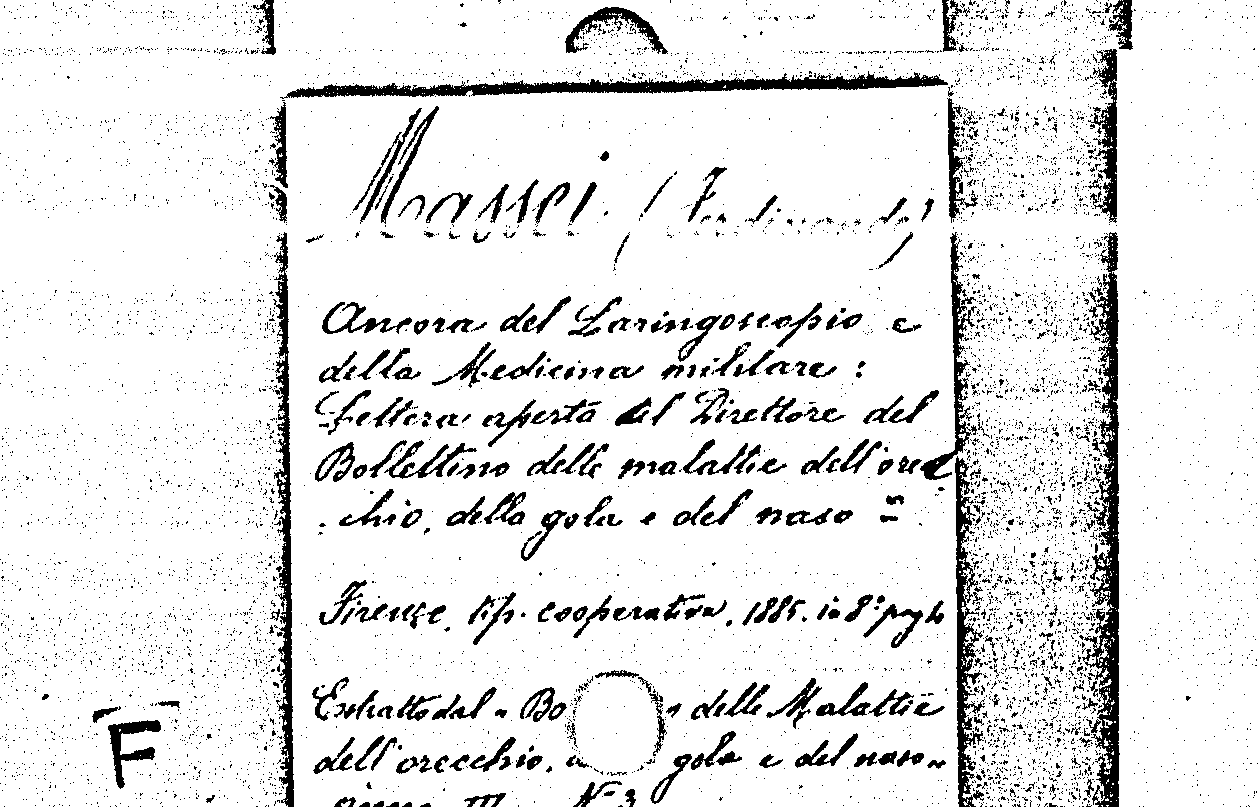 Massei (Ferdinando)
Ancora del Laringoscopio e
della Medicina militare :
Lettera aperta al Direttore del
Bollettino delle malattie dell'orec
-chio, della gola e del naso =
Firenze, tip. cooperativa, 1885. in 8°
Estratto dal « Bo delle Malattie
dell'orecchio, gola e del naso »
anno III N° 3
F